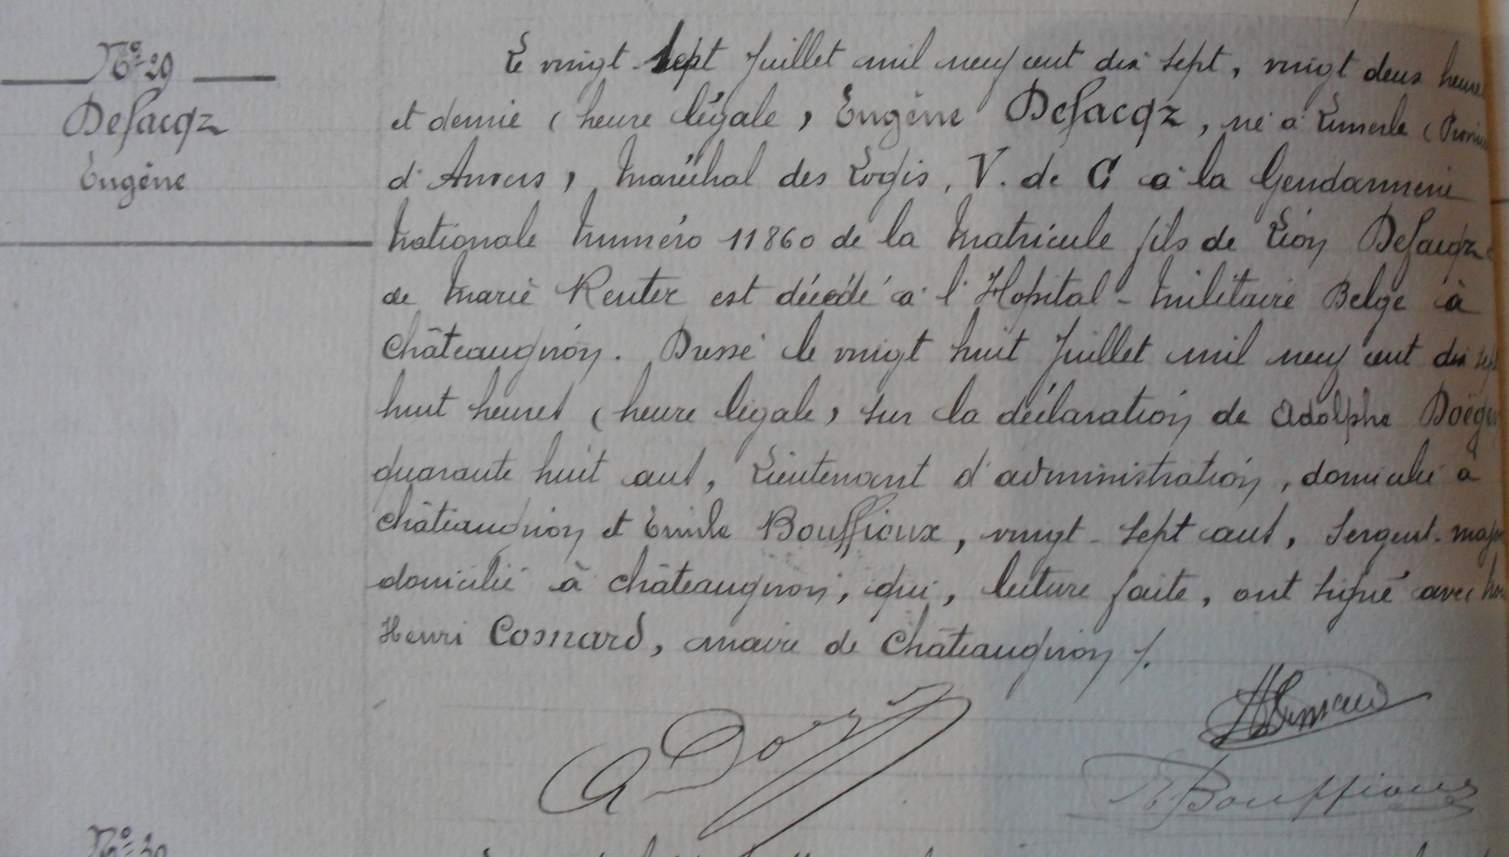 N° 29
Defacqz
Eugène
Le vingt sept Juillet mil neuf cent dix sept, vingt deux heures
et demie (heure légale) Eugène Defacqz, né à Limerle (Provin
d'Anvers) Maréchal des Logis, V. de C à la Gendarmerie
Nationale Numéro 11860 de la Matricule fils de Léon Defacqz
de Marie Renter est décédé à l'Hopital-Militaire Belge à
Châteaugiron. Dressé le vingt huit Juillet mil neuf cent dix sept
huit heures (heure légale) sur la déclaration de Adolphe
quarante huit ans, Lieutenant d'administration, domicilié à
Châteaugiron et Emile Bouffioux, vingt-sept ans, Sergent-major
domicilié à Châteaugiron, qui, lecture faite, ont signé avec
Henri Cosnard, maire de Châteaugiron /.
Bouffioux
N° 30